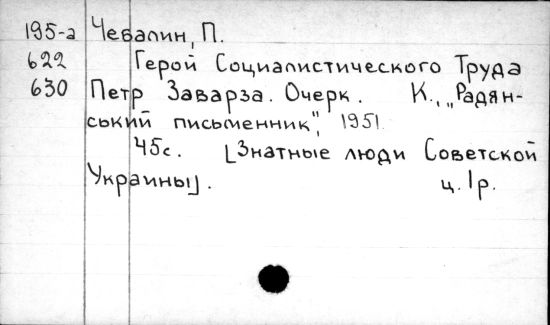 195-а Чевалин, П.
622 Герой Социалистического Труда
630 Петр Заварза. Очерк. К., „Радян-
ський письменник", 1951.
45с. [Знатные люди Советской
Украины]. ц. 1р.